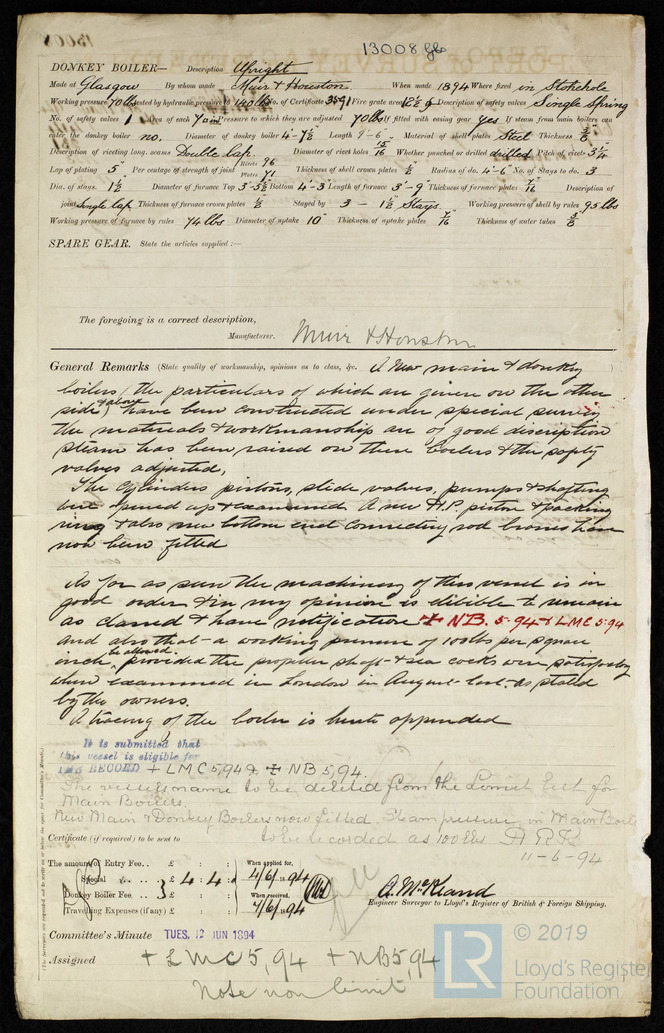 13008 gls
DONKEY BOILER— Description Upright
Made at Glasgow By whom made Muir & Houston When made 1894 Where fixed in Stokehole
Working pressure 70 lbs tested by hydraulic pressure to 140 lbs No. of Certificate 3591 Fire grate area 12½ Description of safety valves Single Spring
No. of safety valves 1 Area of each 7 Pressure to which they are adjusted 70 lbs If fitted with easing gear yes If steam from main boilers can
enter the donkey boiler no. Diameter of donkey boiler 4-7½ Length 9-6 Material of shell plates Steel Thickness 3/8
Description of riveting long. seams Double lap. Diameter of rivet holes 15/16 Whether punched or drilled drilled Pitch of rivets 3¼
Lap of plating 5" Per centage of strength of joint Rivets 96 Plates 71 Thickness of shell crown plates ½ Radius of do. 4-6 No. of Stays to do. 3
Dia. of stays. 1½ Diameter of furnace Top 3-5½ Bottom 4-3 Length of furnace 3-9 Thickness of furnace plates 7/16 Description of
joint Single lap Thickness of furnace crown plates ½ Stayed by 3 - 1½ Stays Working pressure of shell by rules 95 lbs
Working pressure of furnace by rules 74 lbs Diameter of uptake 10" Thickness of uptake plates 7/16 Thickness of water tubes 3/8
SPARE GEAR. State the articles supplied:—
The foregoing is a correct description,
Manufacturer. Muir & Houston
General Remarks (State quality of workmanship, opinions as to class, &c. A new main & donkey
boilers (the particulars of which are given on the other
side & above) have been constructed under special survey
the materials & workmanship are of good discription
steam has been raised on these boilers & the safety
valves adjusted.
The Cylinders pistons, slide valves, pumps & shafting
were opened up & examined A new H.P. piston & packing
ring & also new bottom end connecting rod brasses have
now been fitted
As far as seen the machinery of this vessel is in
good order & in my opinion is elibible to remain
as classed & have notification + NB. 5-94 & LMC 5-94
and also that a working pressure of 100 lbs per square
inch be allowed, provided the propeller shaft & sea cocks were satisfactory
when examined in London in August last as stated
by the owners.
A tracing of the boiler is hereto appended
It is submitted that
this vessel is eligible for
THE RECORD + LMC 5,94 & + NB 5,94.
The vessel's name to be deleted from the Limit List for
Main Boilers.
New Main & Donkey Boilers now fitted. Steam pressure in Main Boiler
to be recorded as 100 lbs
11-6-94
Certificate (if required) to be sent to
The amount of Entry Fee .. £ : : When applied for,
Special .. £ 4 : 4 : 4/6/1894
Donkey Boiler Fee .. £ : : When received,
Travelling Expenses (if any) £ : : 7/6/1894
A. McKeand
Engineer Surveyor to Lloyd's Register of British & Foreign Shipping.
Committee's Minute TUES. 12 JUN 1894
Assigned + LMC 5,94 + NB 5,94
Note non limit
© 2019
LR
Lloyd's Register
Foundation